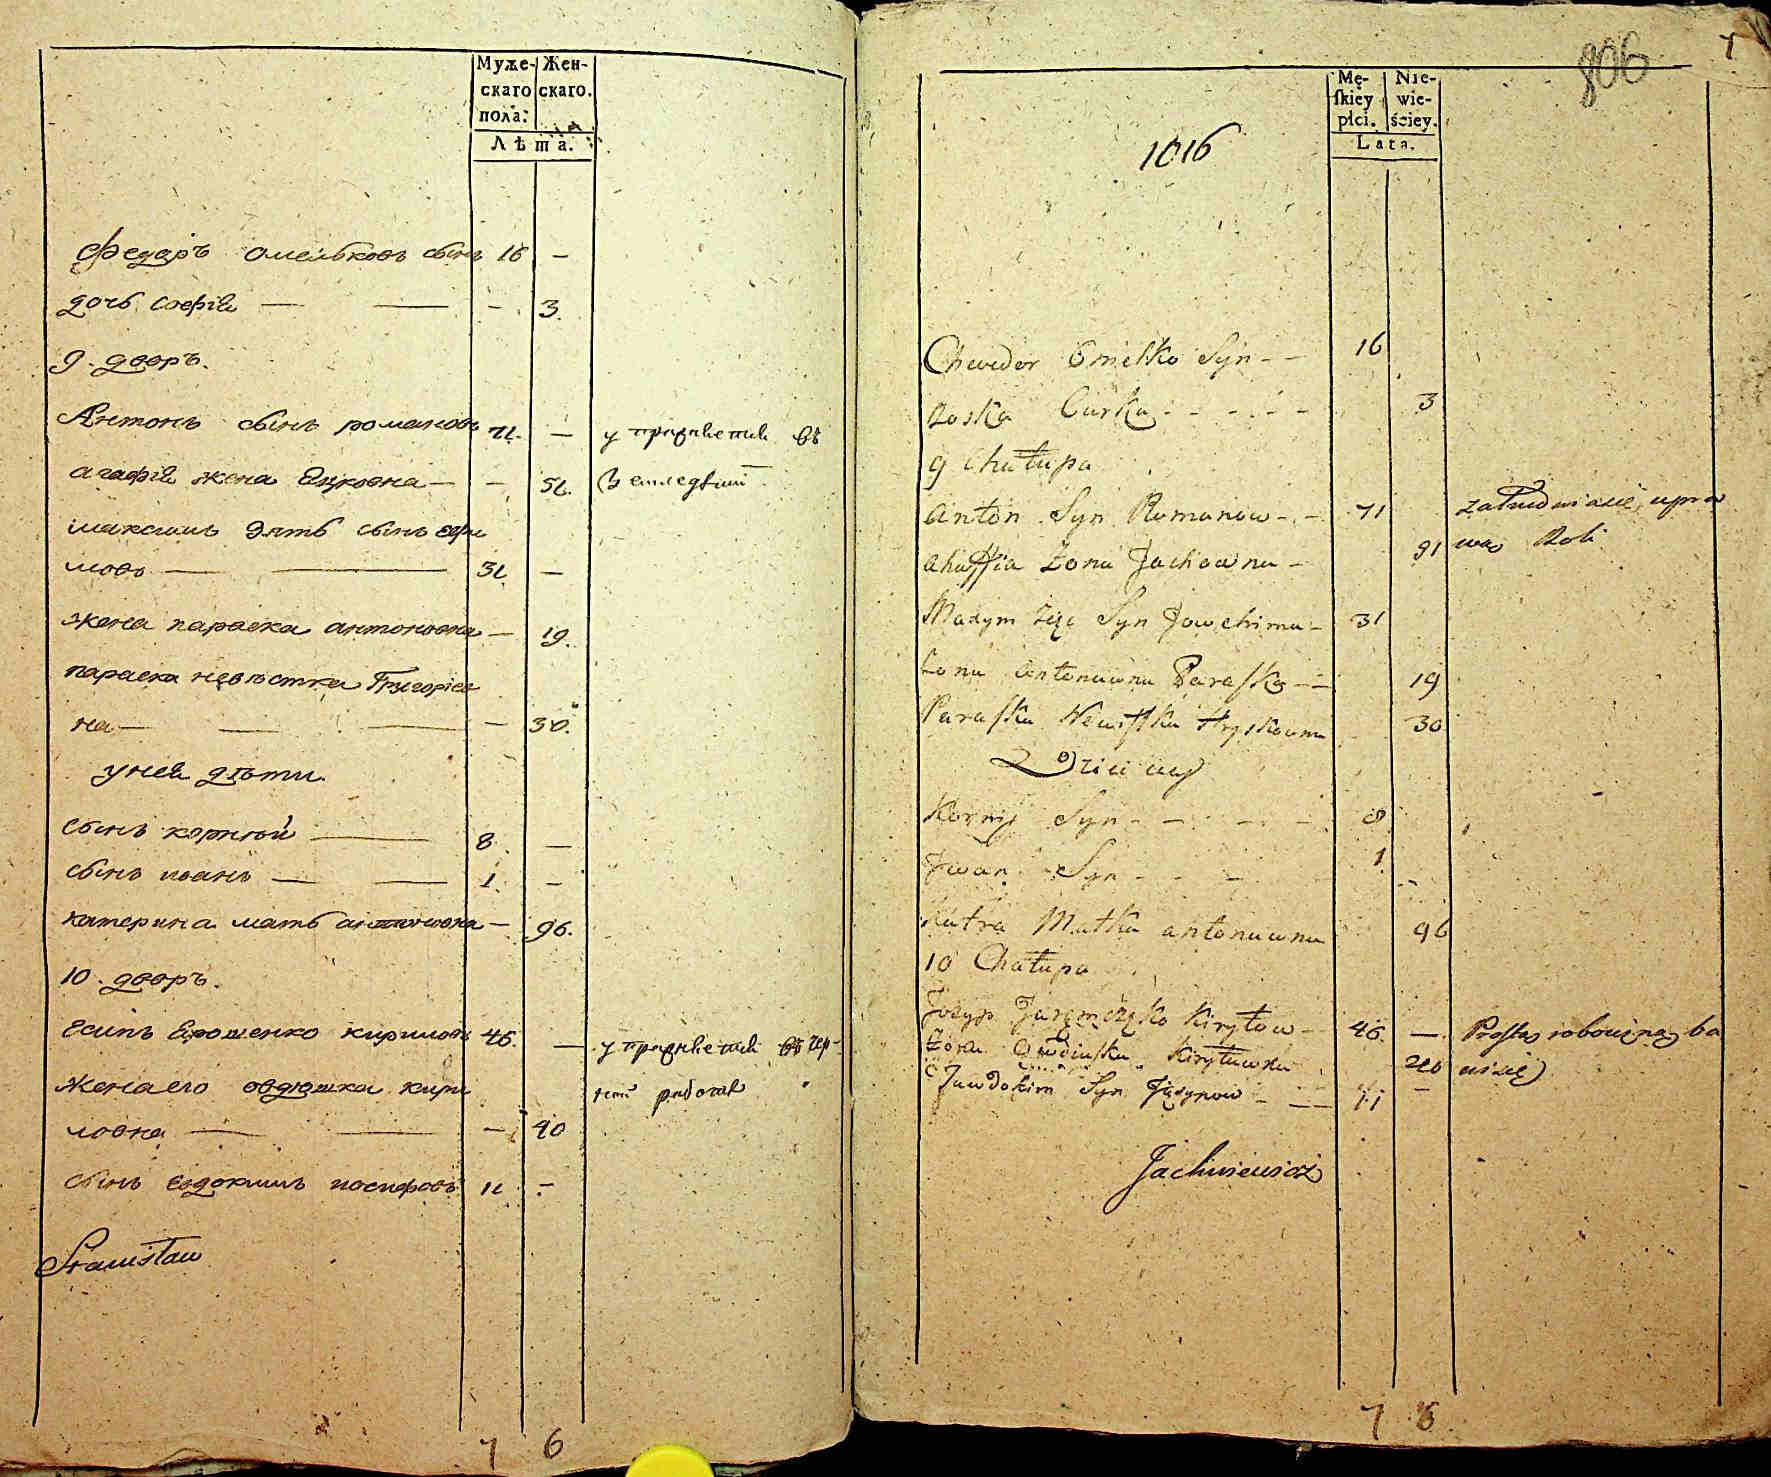 Муже- Жен-
скаго скаго.
пола:
Лѣта.
Федоръ Омельковъ сынъ 16 —
дочь Софія — — - 3.
9. дворъ.
Антонъ сынъ романовъ 71. — упражнѣетца въ
агафія жена Яцковна — - 51.
максимъ зять сынъ ефи
мовъ — — 31 —
жена параска антоновна — 19.
параска невѣстка Григорiев
на — — — — 30.
у ней дѣти
сынъ корнѣй — 8. —
сынъ иванъ — — 1. —
катерина мать антоновна — 96.
10. дворъ.
Есипъ Ерошенко кириловъ 46. — упражнѣетца въ чер-
жена его овдюшка кири ной работѣ
ловна — — — 40
сынъ евдокимъ иосифовъ 11 -
Stanisław
7 6
806 7
Mę- Nie-
skiey wie-
płci. ściey.
Lata.
1016
Chwedor Omelko Syn - - 16
Zoska Curka - - - - - 3
9 Chałupa
Anton Syn Romanow - - 71 zatrudniasię upra
Ahaffia Żona Jackowna - 51 wą Roli
Maxym Zięć Syn Jowchima - 31
Żona Antonowna Paraska - - 19
Paraska Newistka Hryskowna 30
Dzieci iey
Korniy Syn - - - - 8
Jwan Syn - - - 1 --
Katra Matka antonowna 96
10 Chałupa
Jozyp Jaremczęko Kiryłow - 46. — Prostą robocizną ba
Żona Owdiuska Kiryłowna 40 wisię
Jawdokim Syn Jozypow - - - 11 —
Jachimowicz
7 6